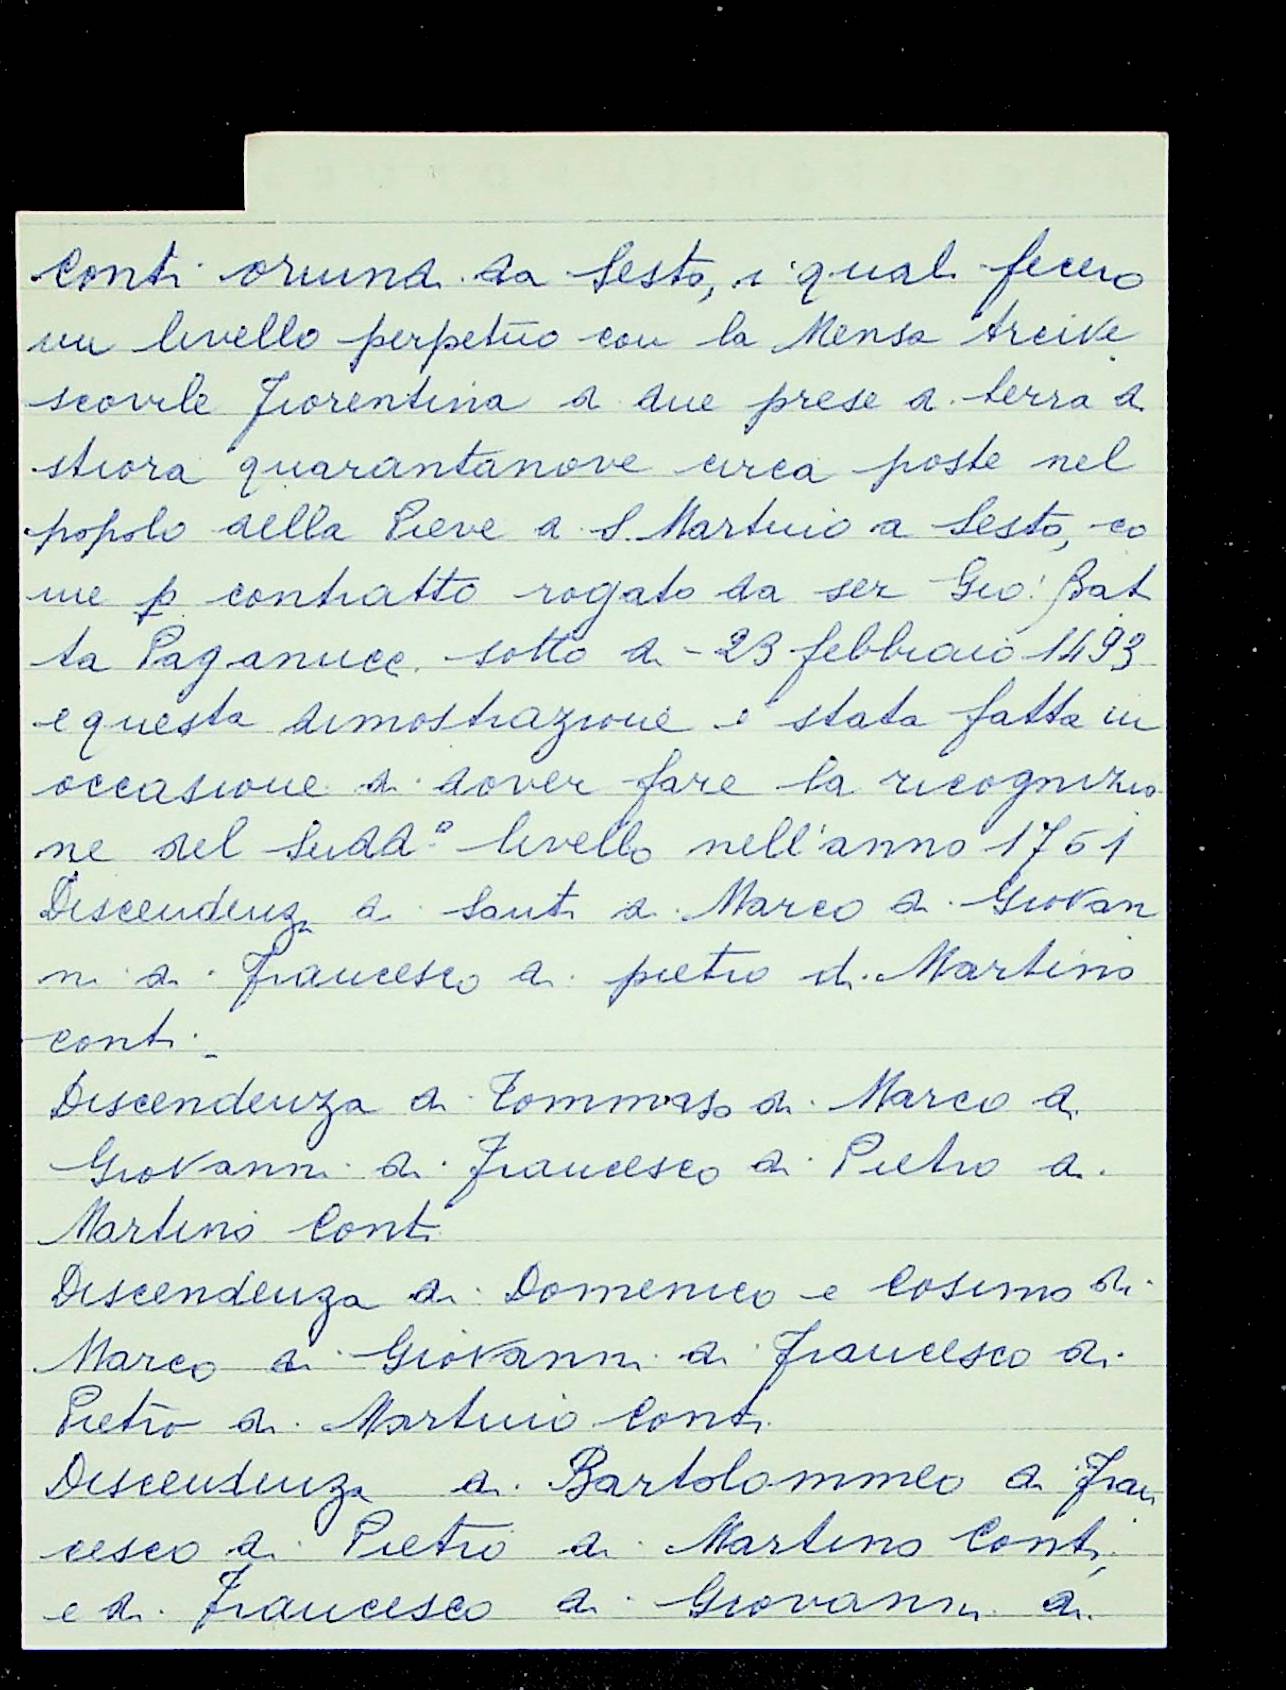 Conti oriundi da Sesto, i quali fecero
un livello perpetuo con la Mensa Arcive
scovile Fiorentina di due prese di terra di
stiora quarantanove circa poste nel
popolo della Pieve di S. Martino a Sesto, co
me p contratto rogato da ser Gio: Bat
ta Paganucci sotto di - 23 febbraio 1493
e questa dimostrazione è stata fatta in
occasione di dover fare la ricognizio
ne del sudd.º livello nell'anno 1761
Discendenza di Santi di Marco di Giovan
ni di Francesco di pietro di Martino
conti.
Discendenza di Tommaso di Marco di
Giovanni di Francesco di Pietro di
Martino Conti
Discendenza di Domenico e Cosimo di
Marco di Giovanni di Francesco di
Pietro di Martino Conti
Discendenza di Bartolommeo di Fran
cesco di Pietro di Martino Conti,
e di Francesco di Giovanni di